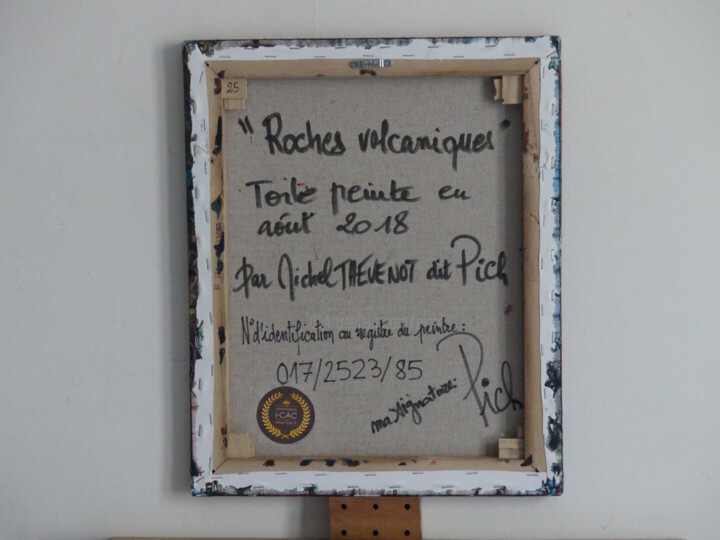 25
"Roches volcaniques"
Toile peinte en
août 2018
Par Michel THEVENOT dit Pich
N° d'identification au registre du peintre :
017/2523/85
ma signature:
Pich
I-CAC